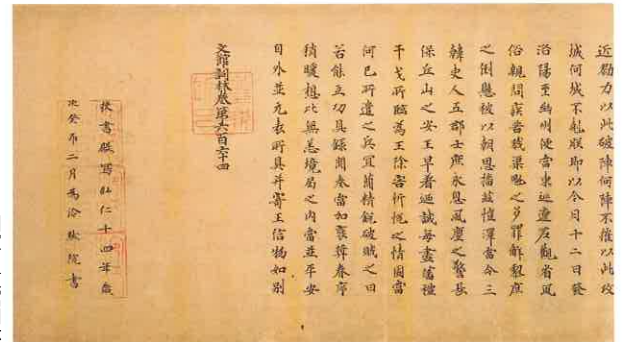 近勠力以此破陣何陣不摧以此攻
城何城不剋朕即以今月十二日發
洛陽至幽州便當東巡遼左觀省風
俗親問疾苦戮渠魁之多罪解黎庶
之倒懸被以朝恩播茲愷澤當令三
韓史人五郡士庶永息風塵之警長
保丘山之安王早著迺誠每盡藩禮
干戈所臨為王除害忻悅之情固當
何已所遣之兵宜簡精銳破賊之日
若能立功具錄聞奏當加褒獎春序
稍暖想比無恙境局之內當並平安
自外並元表所具并寄王信物如別
文館詞林卷第六百六十四
校書殿寫弘仁十四年歲
次癸卯二月為冷然院書